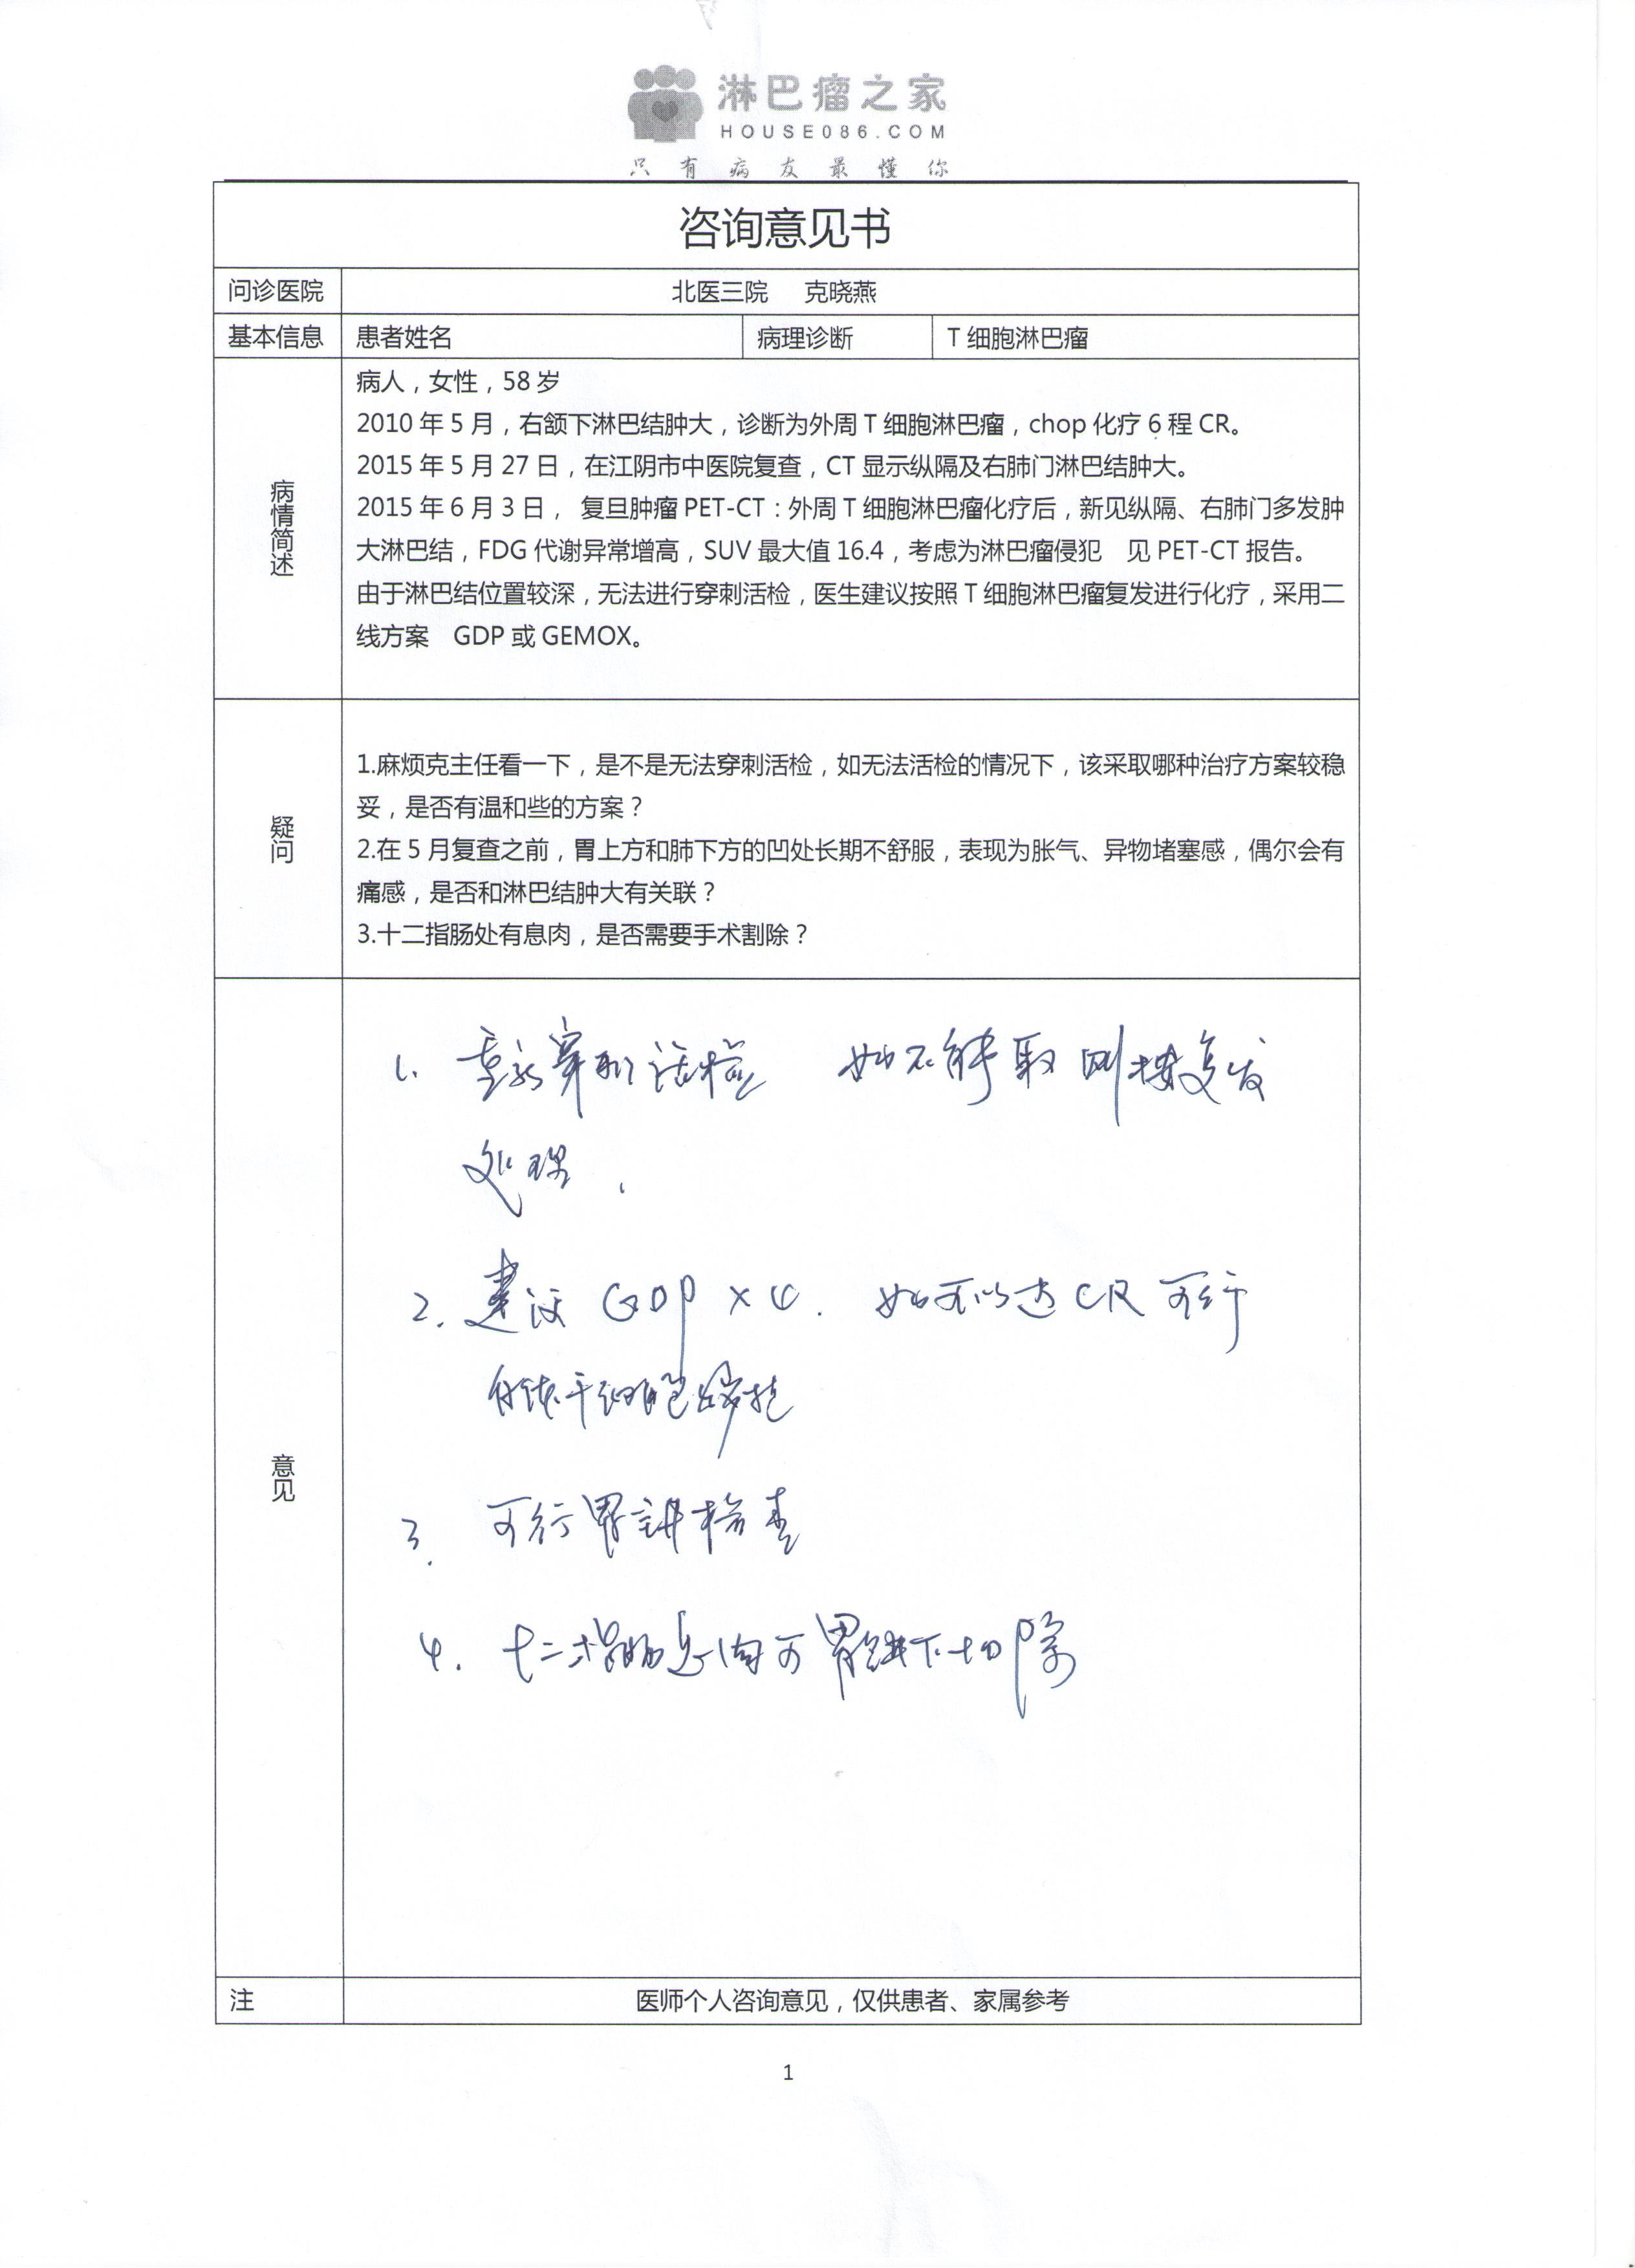 淋巴瘤之家
HOUSE086.COM
只有病友最懂你
咨询意见书
问诊医院 北医三院 克晓燕
基本信息 患者姓名 病理诊断 T 细胞淋巴瘤
病情简述
病人，女性，58 岁
2010 年 5 月，右颌下淋巴结肿大，诊断为外周 T 细胞淋巴瘤，chop 化疗 6 程 CR。
2015 年 5 月 27 日，在江阴市中医院复查，CT 显示纵隔及右肺门淋巴结肿大。
2015 年 6 月 3 日， 复旦肿瘤 PET-CT：外周 T 细胞淋巴瘤化疗后，新见纵隔、右肺门多发肿
大淋巴结，FDG 代谢异常增高，SUV 最大值 16.4，考虑为淋巴瘤侵犯 见 PET-CT 报告。
由于淋巴结位置较深，无法进行穿刺活检，医生建议按照 T 细胞淋巴瘤复发进行化疗，采用二
线方案 GDP 或 GEMOX。
疑问
1.麻烦克主任看一下，是不是无法穿刺活检，如无法活检的情况下，该采取哪种治疗方案较稳
妥，是否有温和些的方案？
2.在 5 月复查之前，胃上方和肺下方的凹处长期不舒服，表现为胀气、异物堵塞感，偶尔会有
痛感，是否和淋巴结肿大有关联？
3.十二指肠处有息肉，是否需要手术割除？
意见
1. 重新穿刺活检 如不能取则按复发
处理.
2. 建议 GDP×4. 如可以达 CR 可行
自体干细胞移植
3. 可行胃镜检查
4. 十二指肠息肉可胃镜下切除
注 医师个人咨询意见，仅供患者、家属参考
1